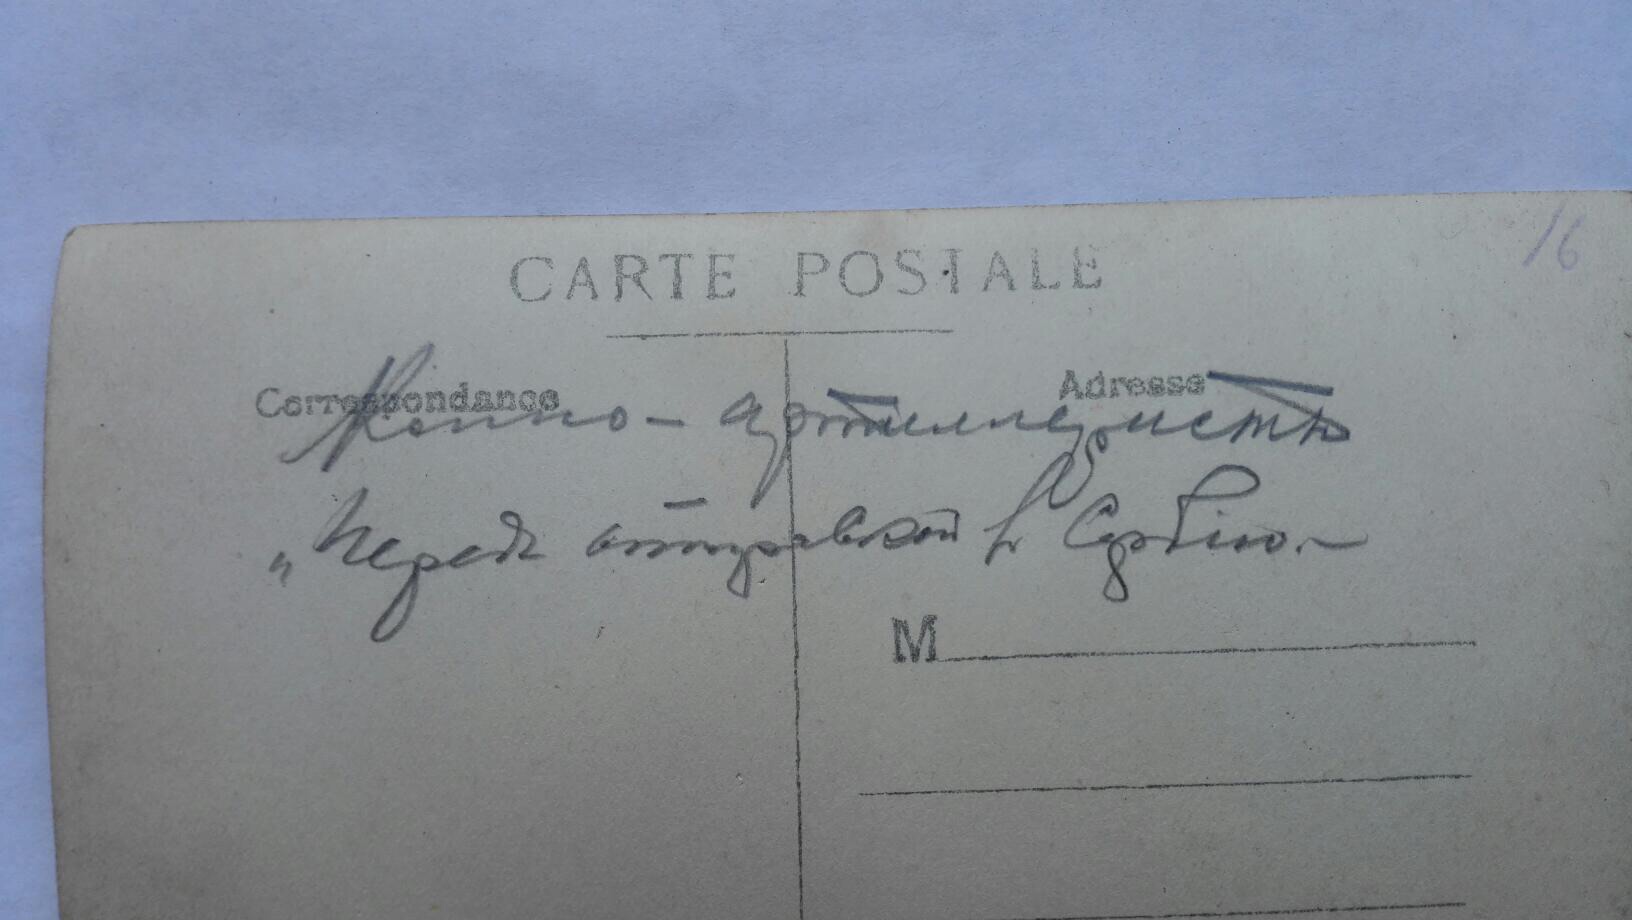 16
CARTE POSTALE
Correspondance
Adresse
Конно-артиллеристъ
„Передъ отправкой въ Сербію.
M